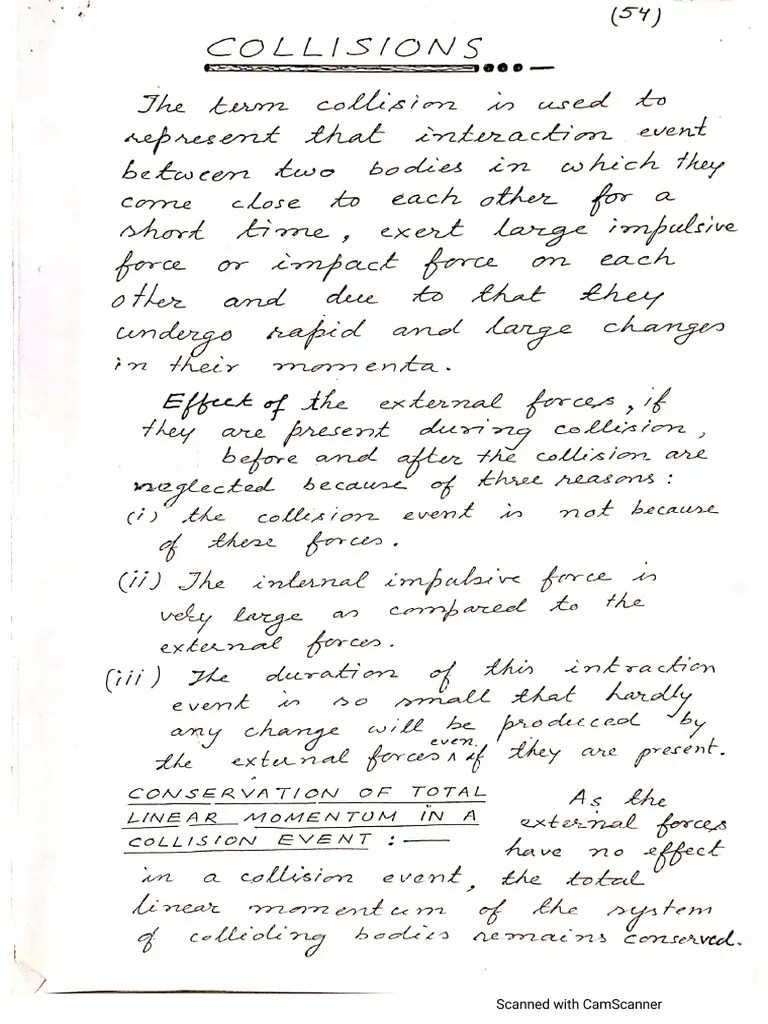 (54)
COLLISIONS
The term collision is used to
represent that interaction event
between two bodies in which they
come close to each other for a
short time, exert large impulsive
force or impact force on each
other and due to that they
undergo rapid and large changes
in their momenta.
Effect of the external forces, if
they are present during collision,
before and after the collision are
neglected because of three reasons:
(i) the collision event is not because
of these forces.
(ii) The internal impulsive force is
very large as compared to the
external forces.
(iii) The duration of this intraction
event is so small that hardly
any change will be produced by
the external forces even if they are present.
CONSERVATION OF TOTAL
LINEAR MOMENTUM IN A
COLLISION EVENT :—
As the
external forces
have no effect
in a collision event, the total
linear momentum of the system
of colliding bodies remains conserved.
Scanned with CamScanner